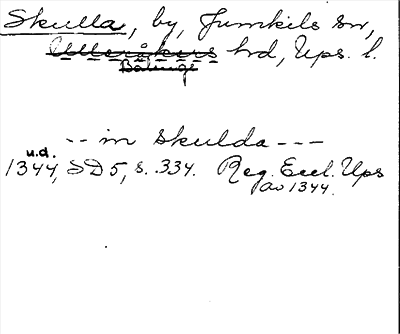 Skulla, by, Jumkils sn,
Ulleråkers hrd, Ups. l.
Bälinge
-- in Skulda ---
u.d.
1344, SD 5, s. 334. Reg. Eccl. Ups
av 1344.